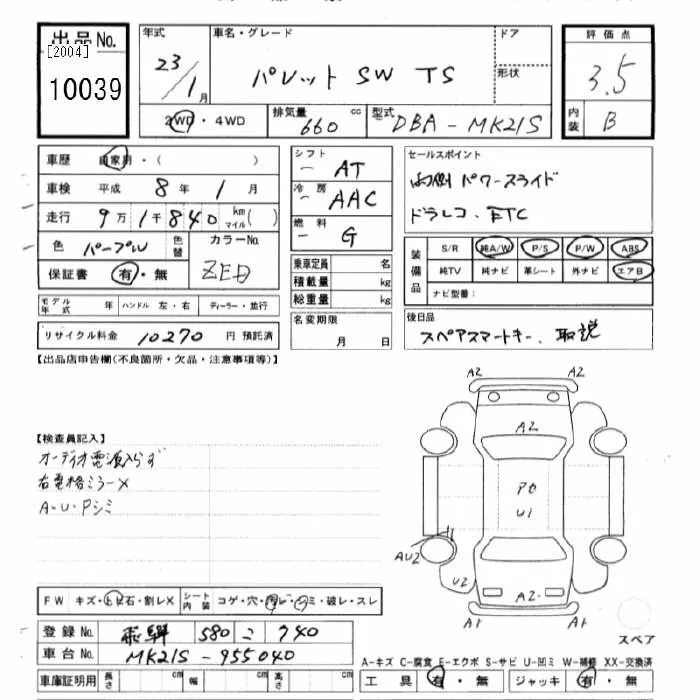 出品No.
[2004]
10039
年式
23/1月
車名・グレード
パレット SW TS
ドア
形状
評価点
3.5
内装
B
2WD・4WD
排気量 660 cc
型式 DBA-MK21S
車歴 自家用・( )
車検 平成 8年 1月
走行 9万1千840 km マイル( )
色 パープル 色替
カラーNo. ZED
保証書 有・無
モデル年式 年 ハンドル 左・右 ディーラー・並行
リサイクル料金 10270 円 預託済
シフト - AT
冷房 - AAC
燃料 - G
乗車定員 名
積載量 kg
総重量 kg
名変期限
月 日
セールスポイント
両側パワースライド
ドラレコ、ETC
装備品
S/R 純A/W P/S P/W ABS
純TV 純ナビ 革シート 外ナビ エアB
ナビ型番:
後日品
スペアスマートキー、取説
【出品店申告欄(不良箇所・欠品・注意事項等)】
【検査員記入】
オーディオ電源入らず
右電格ミラーX
A-U-Pシミ
A2 A2
A2
P0
U1
AU2
U2
A2
A1 A1
スペア
FW キズ・トビ石・割レX
シート内装 コゲ・穴・汚レ・シミ・破レ・スレ
登録No. 飛騨 580 こ 740
車台No. MK21S-955040
車庫証明用 長さ cm 幅 cm 高さ cm
A-キズ C-腐食 E-エクボ S-サビ U-凹ミ W-補修 XX-交換済
工具 有・無 ジャッキ 有・無